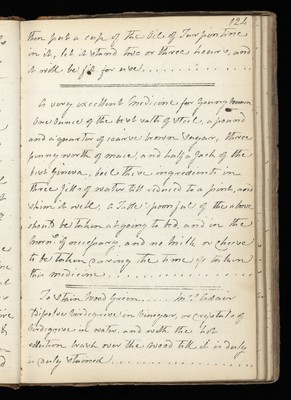 124
then put a cup of the Oil of Turpintine
in it, let it stand two or three hours, and
it will be fit for use
A very excellent Medicine for Young Women
One Ounce of the best salts of Steel, a pound
and a quarter of coarse brown Sugar, three
penny worth of mace, and half a Jack of the
best Geneva, boil these ingredients in
three Jills of water till reduced to a pint, and
skim it well. A Table spoonful of the above
should be taken at going to bed, and in the
morng. if necessary, and no milk or cheese
to be taken during the time of taking
this medicine
To Stain Wood Green
Dissolve Verdegrise in Vinegar, or crystals of
Verdegrise in water, and with the hot
solution brush over the wood till it is duly
stained